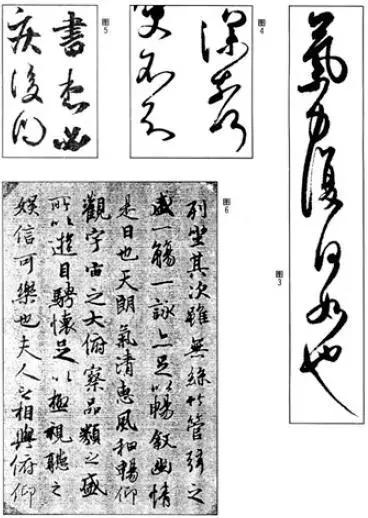 氣力復何如也
图3
图4
图5
列坐其次雖無絲竹管弦之
盛一觴一詠亦足以暢敘幽情
是日也天朗氣清惠風和暢仰
觀宇宙之大俯察品類之盛
所以遊目騁懷足以極視聽之
娛信可樂也夫人之相與俯仰
图6